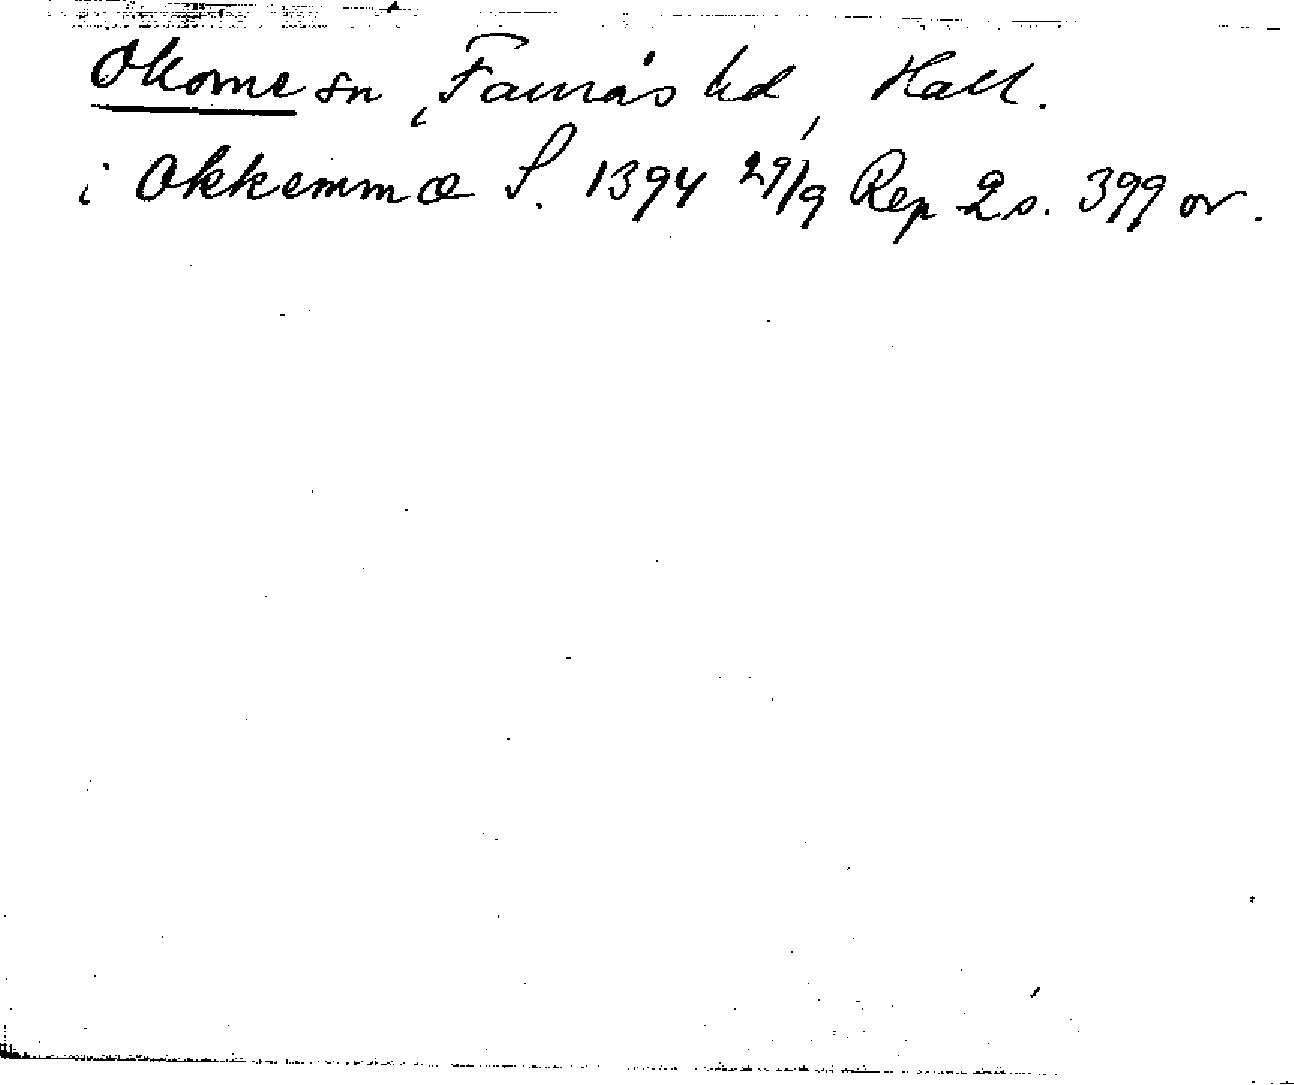 Okome sn, Faurås hd, Hall.
i Okkemmæ S. 1394 29/9 Rep 2 s. 399 or.